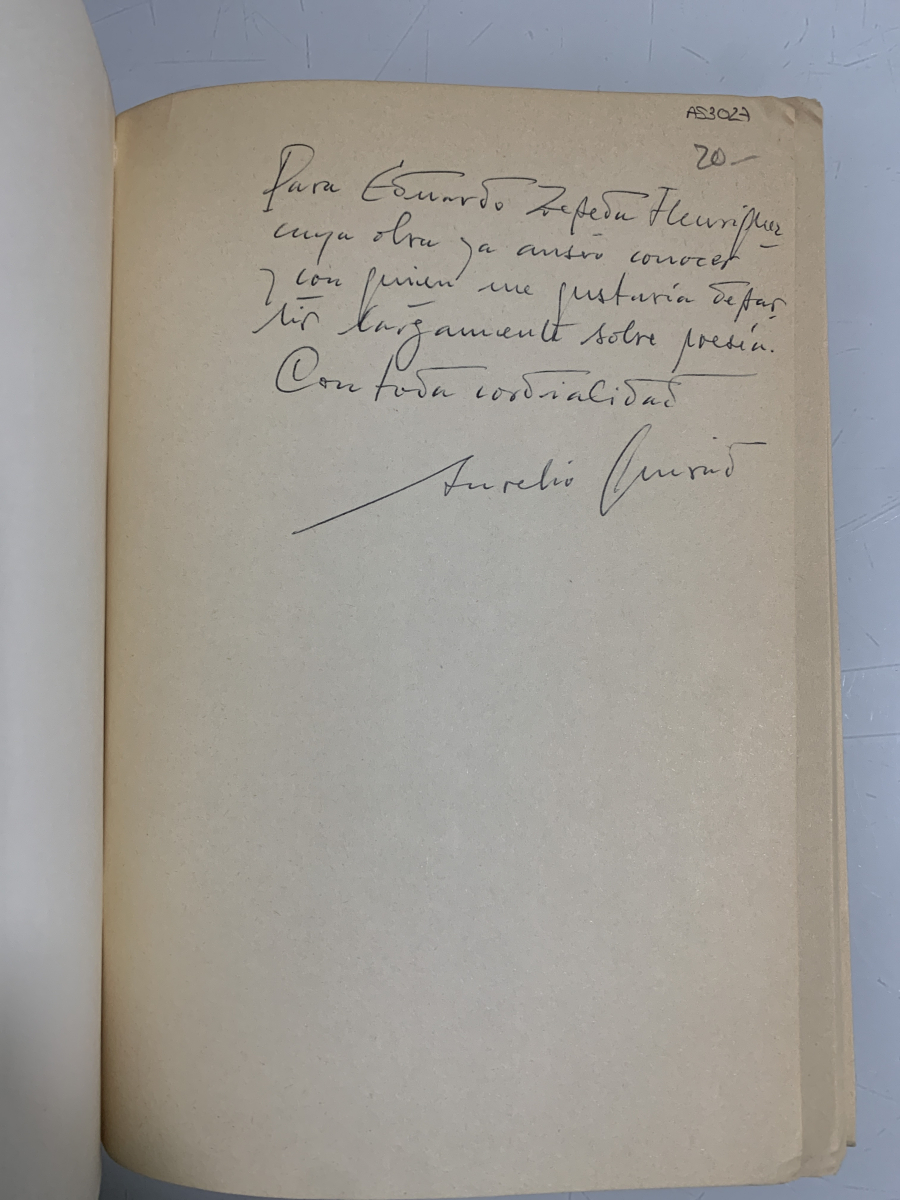 AS3027
20-
Para Eduardo Zepeda Henríquez
cuya obra ya ansío conocer
y con quien me gustaría depar-
tir largamente sobre poesía.
Con toda cordialidad
Aurelio